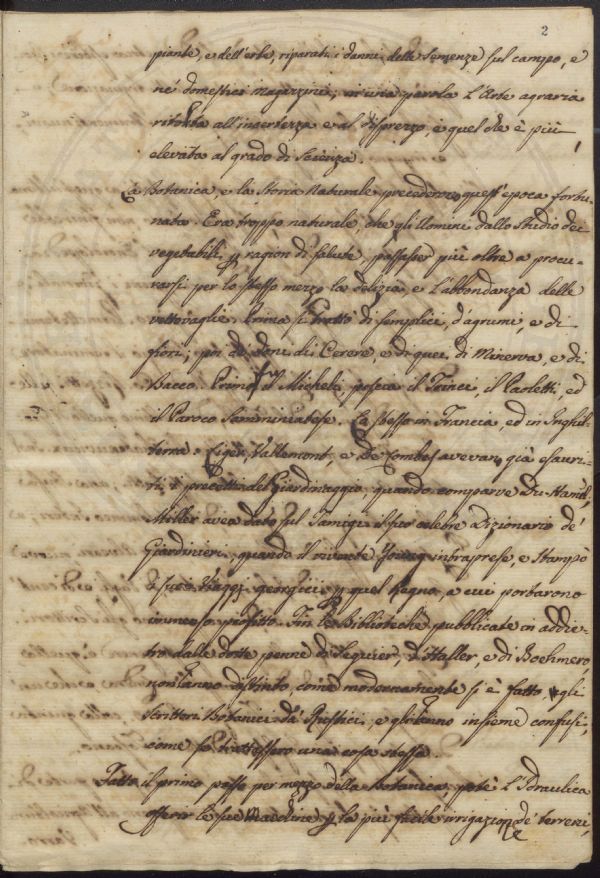 2
piante, e dell'erbe, riparati i danni delle semenze sul campo, e
ne' domestici magazzini; in una parola L'Arte agraria
ritolta all'incertezza e al disprezzo, e quel che è più,
elevata al grado di Scienza.
La Botanica, e la Storia Naturale precederono quest'epoca fortu-
nata. Era troppo naturale, che gli Uomini dallo studio dei
vegetabili, p ragion di salute, passasser più oltre a procu-
rarsi per lo stesso mezzo la delizia e l'abbondanza delle
vettovaglie. Prima si trattò di semplici, d'agrumi, e di
fiori; poi de' doni di Cerere, e di quei di Minerva, e di
Bacco. Primo fu il Micheli, poscia il Trinci, il Paoletti, ed
il Paroco Samminiatese. Lo stesso in Francia, ed in Inghil-
terra. Liger, Vallemont, e De Combes avevan già esauri-
ti i precetti del Giardinaggio, quando comparve Du-Hamel;
Miller avea dato sul Tamigi il suo celebre Dizionario de'
Giardinieri, quando il vivente Young intraprese, e stampò
i suoi Viaggi georgici p quel Regno, a cui portarono
immenso profitto. In le Biblioteche pubblicate in addie-
tro dalle dotte penne di Seguier, d'Haller, e di Boehmero
non hanno distinto, come modernamente si è fatto, gli
Scrittori Botanici da' Rustici, e gli hanno insieme confusi,
come se trattassero una cosa stessa.
Fatto il primo passo per mezzo della Botanica, potè L'Idraulica
offerir le sue Macchine p la più facile irrigazion de' terreni,
e